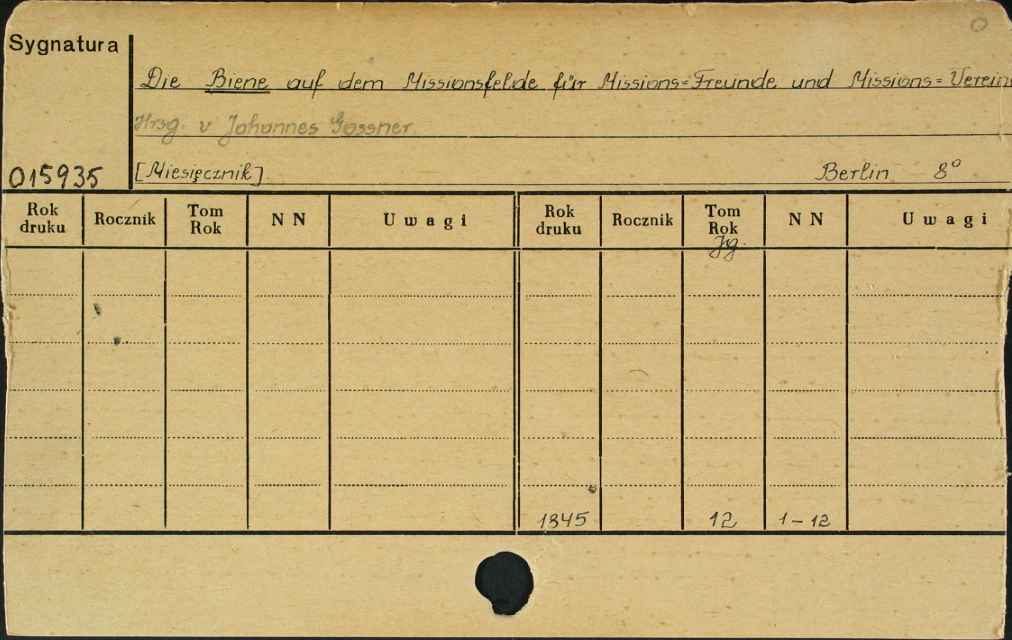 Sygnatura
Die Biene auf dem Missionsfelde für Missions=Freunde und Missions=Verein
Hrsg. v Johannes Gossner
015935 [Miesięcznik] Berlin 8°
Rok druku Rocznik Tom Rok N N Uwagi Rok druku Rocznik Tom Rok N N Uwagi
Jg.
1845 12 1-12